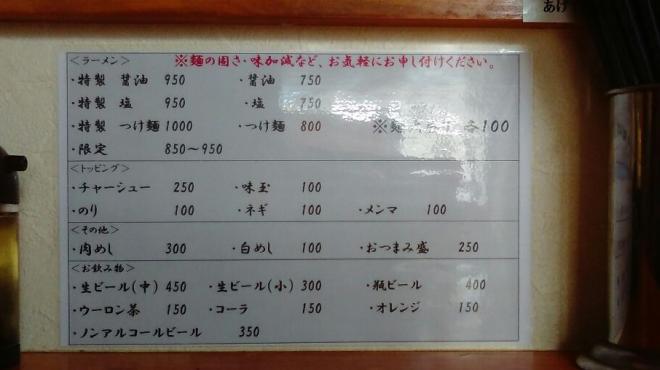 あけ
<ラーメン> ※麺の固さ・味加減など、お気軽にお申し付けください。
・特製 醤油 950 ・醤油 750
・特製 塩 950 ・塩 750
・特製 つけ麺 1000 ・つけ麺 800 ※麺 各100
・限定 850〜950
<トッピング>
・チャーシュー 250 ・味玉 100
・のり 100 ・ネギ 100 ・メンマ 100
<その他>
・肉めし 300 ・白めし 100 ・おつまみ盛 250
<お飲み物>
・生ビール(中) 450 ・生ビール(小) 300 ・瓶ビール 400
・ウーロン茶 150 ・コーラ 150 ・オレンジ 150
・ノンアルコールビール 350